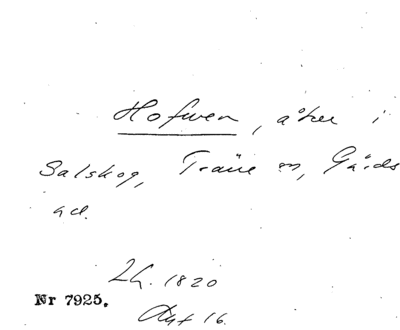 Hofwen, åker i
Salskog, Träne sn, Gärds
hd.
Lh. 1820
Nr 7925.
Akt 16.